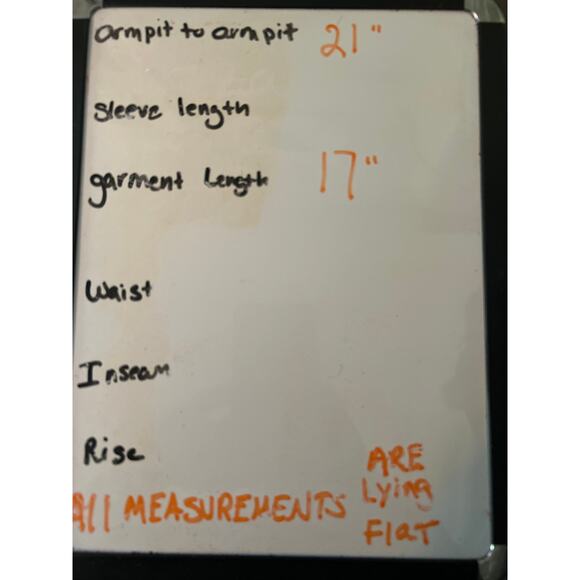 armpit to armpit 21"
Sleeve length
garment Length 17"
Waist
Inseam
Rise
All MEASUREMENTS ARE
Lying
Flat